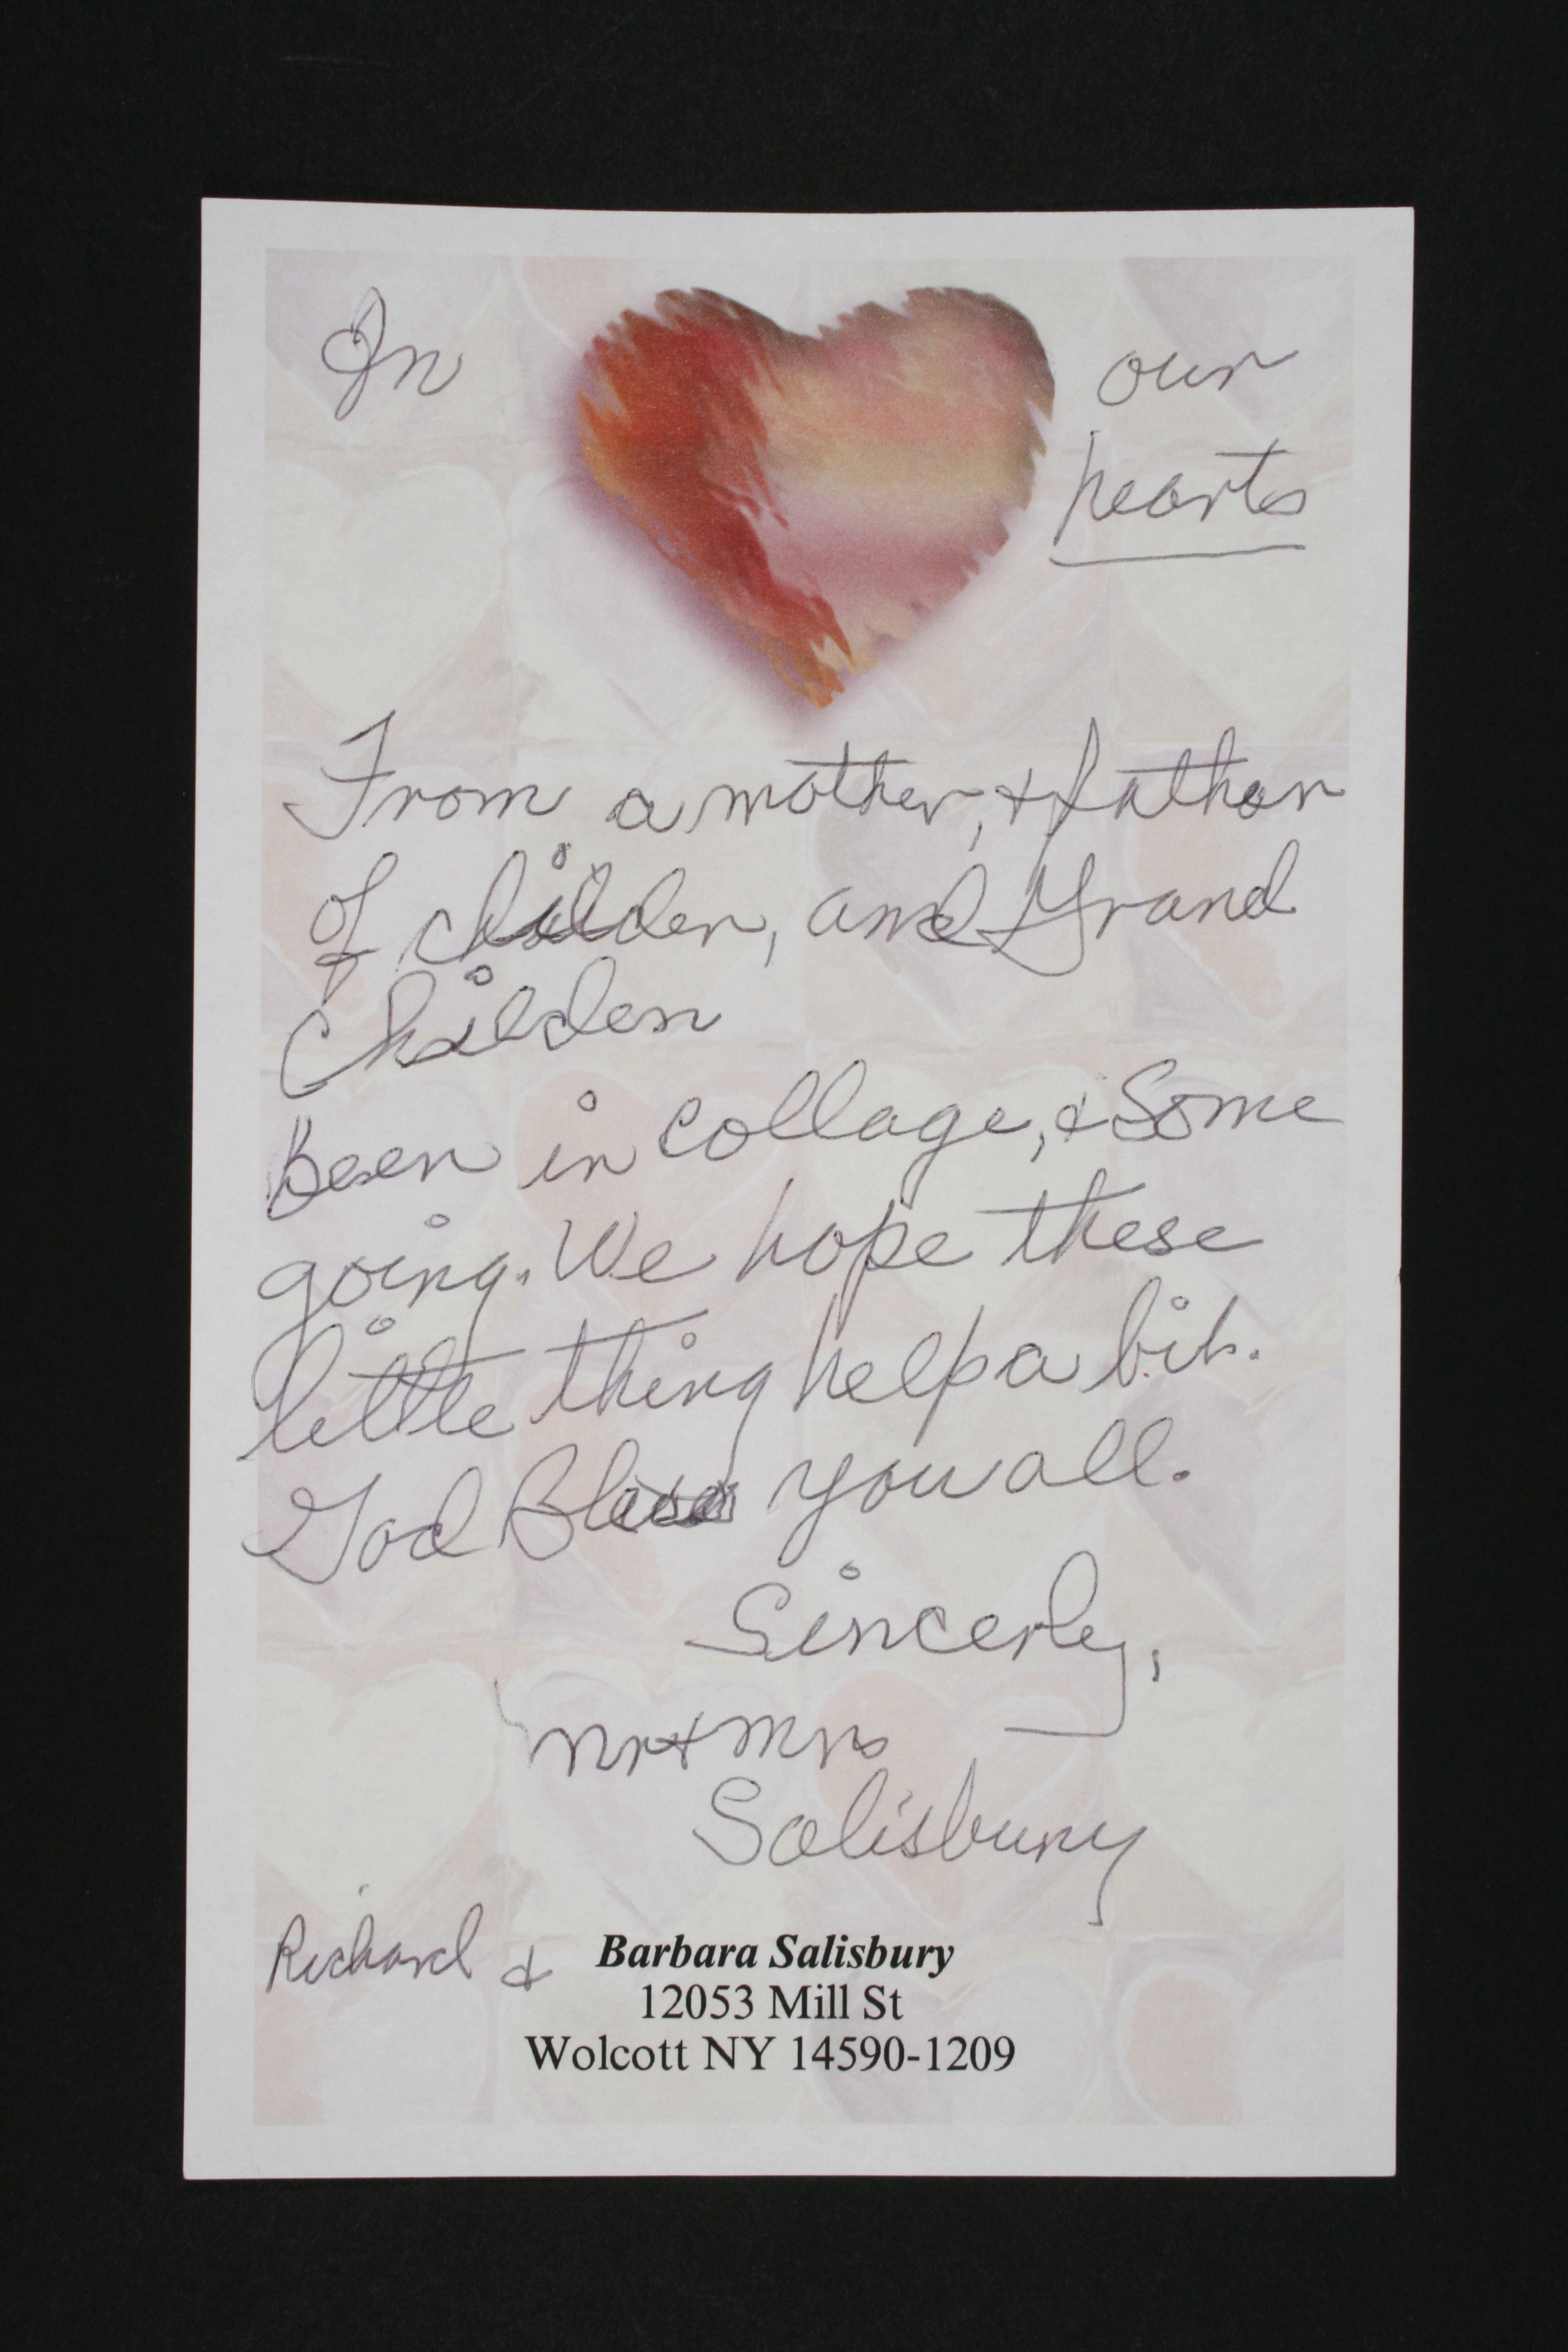 In our
hearts
From a mother, & father
of childen, and Grand
Childen
Been in collage, & Some
going. We hope these
little thing help a bit.
God Bless you all.
Sincerly,
Mr & Mrs
Salisbury
Richard & Barbara Salisbury
12053 Mill St
Wolcott NY 14590-1209